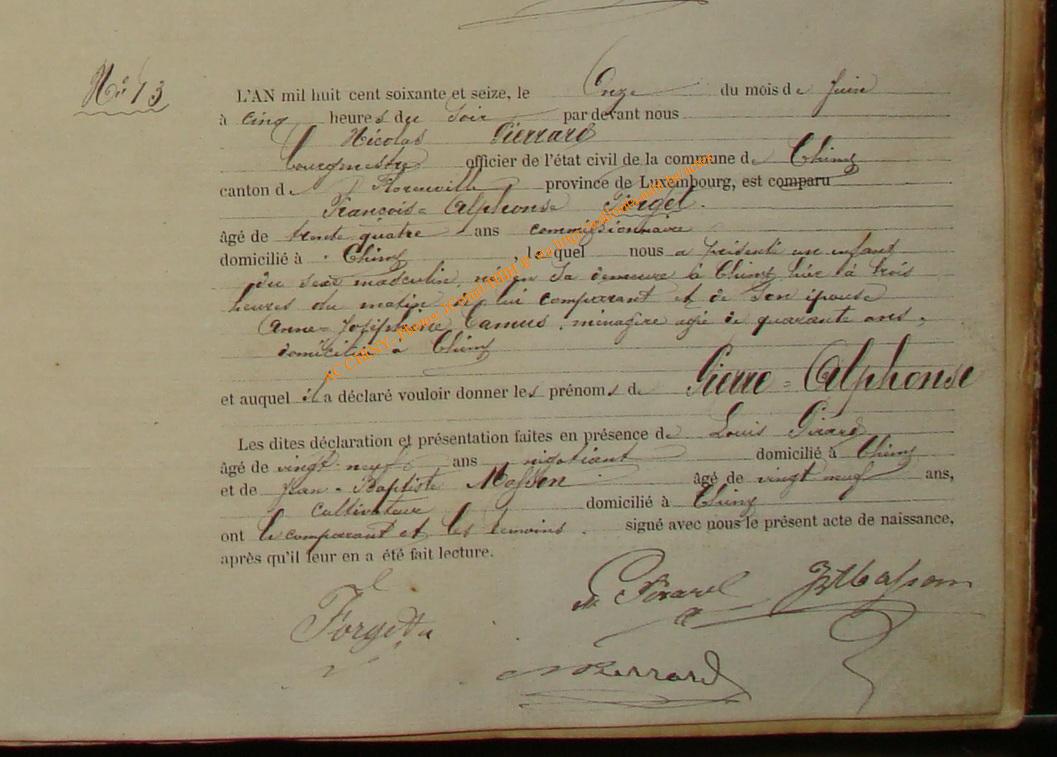 No 13
L'AN mil huit cent soixante et seize, le Onze du mois de Juin
à cinq heures du soir par devant nous
Nicolas Pierrard
bourgmestre officier de l'état civil de la commune de Chiny
canton de Florenville province de Luxembourg, est comparu
François-Alphonse Forget.
âgé de trente quatre ans commissionnaire
domicilié à Chiny, lequel nous a présenté un enfant
du sexe masculin, né en sa demeure à Chiny hier à trois
heures du matin de lui comparant et de son épouse
Anne-Joséphine Camus, ménagère agée de quarante ans,
domiciliée à Chiny
et auquel il a déclaré vouloir donner les prénoms de Pierre-Alphonse
Les dites déclaration et présentation faites en présence de Louis Girard
âgé de vingt-neuf ans négotiant domicilié à Chiny
et de Jean-Baptiste Masson âgé de vingt neuf ans,
cultivateur domicilié à Chiny
ont le comparant et les témoins. signé avec nous le présent acte de naissance,
après qu'il leur en a été fait lecture.
Forget a
Girard JBMasson
NPierrard
AC CHINY